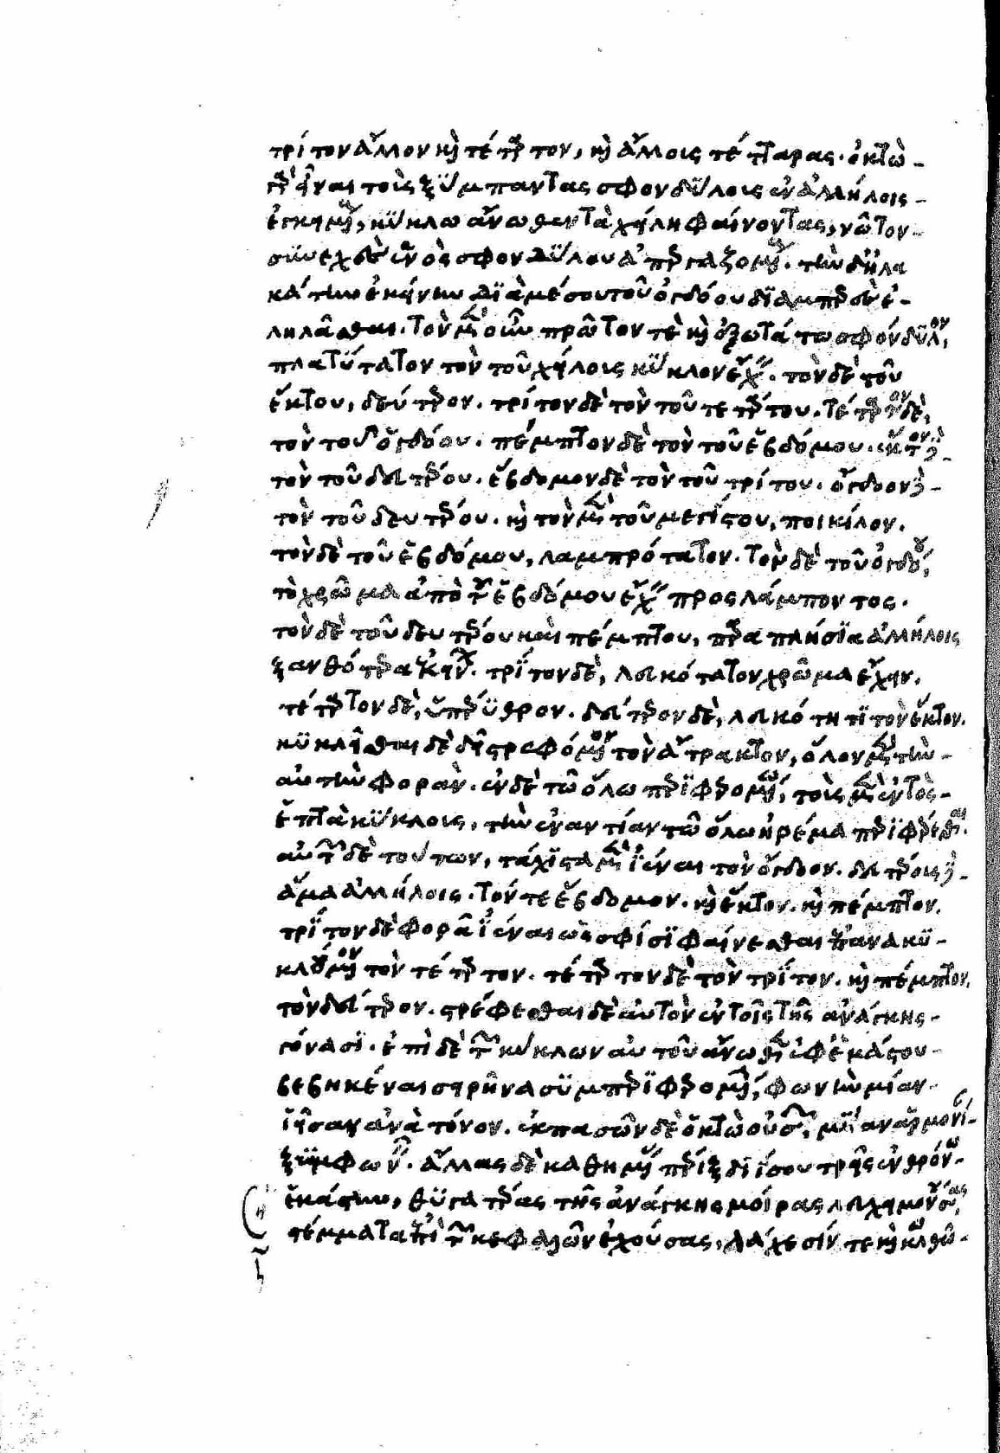 τρίτον ἄλλον καὶ τέταρτον, καὶ ἄλλους τέτταρας. ὀκτὼ
γὰρ εἶναι τοὺς ξύμπαντας σφονδύλους ἐν ἀλλήλοις
ἐγκειμένους, κύκλω ἄνωθεν τὰ χείλη φαίνοντας, νῶτον
συνεχὲς ἑνὸς σφονδύλου ἀπεργαζομένους. τὴν δὲ ἠλα
κάτην ἐκείνην διὰ μέσου τοῦ ὀγδόου διαμπερὲς ἐ
ληλάσθαι. τὸν μὲν οὖν πρῶτον τὲ καὶ ἐξωτάτω σφόνδυλον,
πλατύτατον τὸν τοῦ χείλους κύκλον ἔχειν. τὸν δὲ τοῦ
ἕκτου, δεύτερον. τρίτον δὲ τὸν τοῦ τετάρτου. τέταρτον δὲ,
τὸν τοῦ ὀγδόου. πέμπτον δὲ τὸν τοῦ ἑβδόμου. ἕκτον δὲ
τὸν τοῦ πέμπτου. ἕβδομον δὲ τὸν τοῦ τρίτου. ὄγδοον δὲ
τὸν τοῦ δευτέρου. καὶ τὸν μὲν τοῦ μεγίστου, ποικίλον.
τὸν δὲ τοῦ ἑβδόμου, λαμπρότατον. τὸν δὲ τοῦ ὀγδόου,
τὸ χρῶμα ἀπὸ τοῦ ἑβδόμου ἔχειν προσλάμποντος.
τὸν δὲ τοῦ δευτέρου καὶ πέμπτου, παραπλήσια ἀλλήλοις
ξανθότερα ἐκείνων. τρίτον δὲ, λευκότατον χρῶμα ἔχειν.
τέταρτον δὲ, ὑπέρυθρον. δεύτερον δὲ, λευκότητι τὸν ἕκτον.
κυκλεῖσθαι δὲ δὴ στρεφόμενον τὸν ἄτρακτον, ὅλον μὲν τὴν
αὐτὴν φοράν. ἐν δὲ τῶ ὅλω περιφερομένω, τοὺς μὲν ἐντὸς
ἑπτὰ κύκλους, τὴν ἐναντίαν τῶ ὅλω ἠρέμα περιφέρεσθαι.
αὐτῶν δὲ τούτων, τάχιστα μὲν ἰέναι τὸν ὄγδοον. δευτέρους δὲ
ἅμα ἀλλήλοις. τόν τε ἕβδομον. καὶ ἕκτον. καὶ πέμπτον.
τρίτον δὲ φορᾶ ἰέναι ὡς σφίσι φαίνεσθαι ἐπανακυ
κλούμενον τὸν τέταρτον. τέταρτον δὲ τὸν τρίτον. καὶ πέμπτον,
τὸν δεύτερον. στρέφεσθαι δὲ αὐτὸν ἐν τοῖς τῆς ἀνάγκης
γόνασι. ἐπὶ δὲ τῶν κύκλων αὐτοῦ ἄνωθεν ἐφ' ἑκάστου
βεβηκέναι σειρῆνα συμπεριφερομένην, φωνὴν μίαν
ἱεῖσαν ἀνὰ τόνον. ἐκ πασῶν δὲ ὀκτὼ οὐσῶν, μίαν ἁρμονίαν
ξυμφωνεῖν. ἄλλας δὲ καθημένας πέριξ δι' ἴσου τρεῖς ἐν θρόνω
ἑκάστην, θυγατέρας τῆς ἀνάγκης μοίρας λευχημονούσας,
στέμματα ἐπὶ τῶν κεφαλῶν ἐχούσας, λάχεσίν τε καὶ κλωθὼ